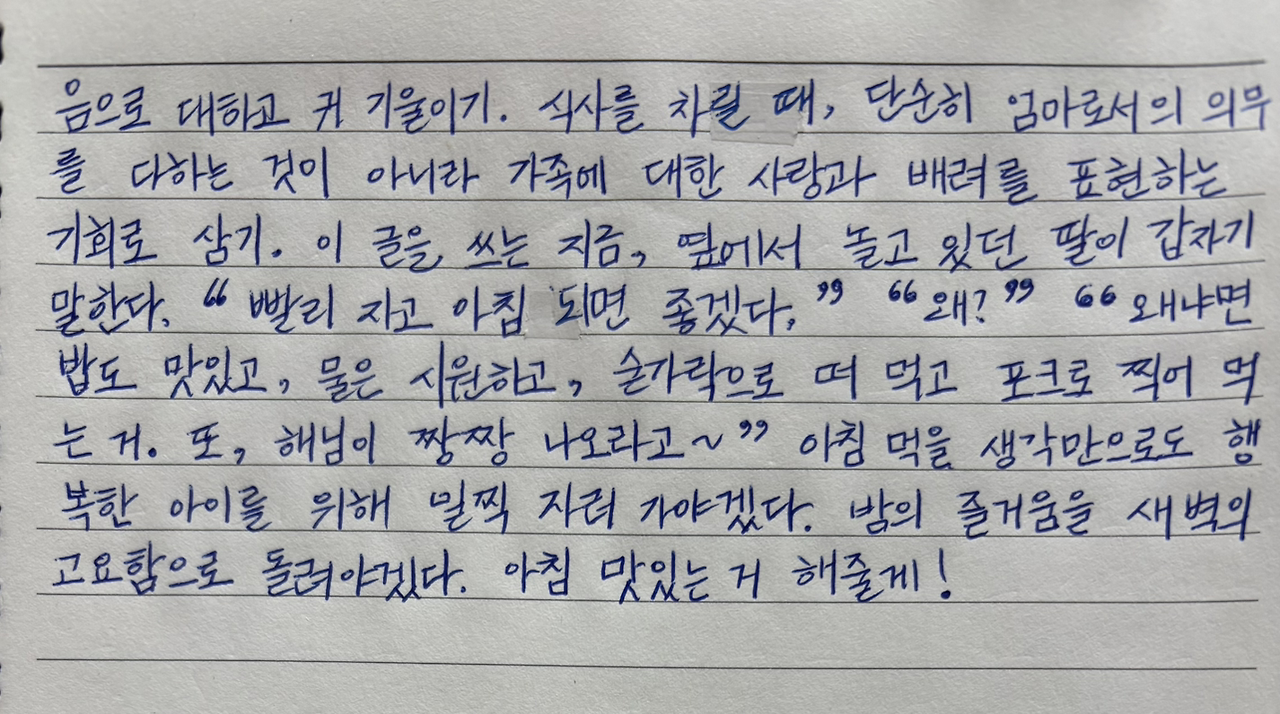 음으로 대하고 귀 기울이기. 식사를 차릴 때, 단순히 엄마로서의 의무
를 다하는 것이 아니라 가족에 대한 사랑과 배려를 표현하는
기회로 삼기. 이 글을 쓰는 지금, 옆에서 놀고 있던 딸이 갑자기
말한다. “빨리 자고 아침 되면 좋겠다.” “왜?” “왜냐면
밥도 맛있고, 물은 시원하고, 숟가락으로 떠 먹고 포크로 찍어 먹
는 거. 또, 해님이 짱짱 나오라고~” 아침 먹을 생각만으로도 행
복한 아이를 위해 일찍 자러 가야겠다. 밤의 즐거움을 새벽의
고요함으로 돌려야겠다. 아침 맛있는 거 해줄게!